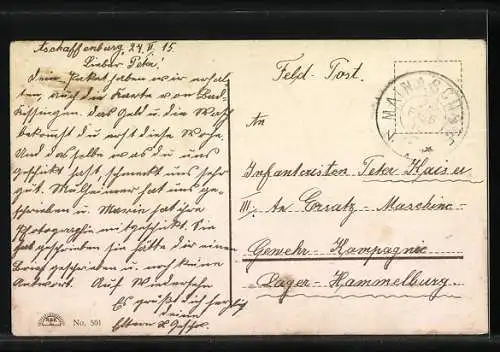 Aschaffenburg, 24. V. 15
Lieber Peter!
Dein Packet haben wir erhal-
ten, auch die Karte von Bad-
Kissingen. das Geld u. die Wäsch
bekomst du erst diese Woche.
Und das selbe was du uns
geschikt hast, schmekt uns sehr
gut. Mülheimer hat uns ge-
schrieben u. Marie hat ihre
Photographie mitgeschikt. Sie
hat geschrieben sie hätte dir einen
Brief geschrieben u. noch keine
Antwort. Auf Wiedersehn
Es grüßt dich herzlich
deine
Eltern u. Geschw.
No. 501
Feld-Post.
MAINASCHAFF
An
Infanteristen Peter Kaiser
III. An Ersatz-Maschine-
Gewehr-Kompagnie
Lager-Hammelburg.